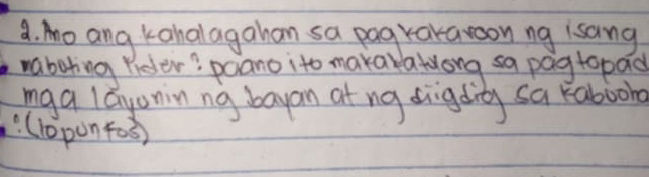 2. Ano ang kahalagahan sa pagkakaroon ng isang
mabuting lider? paano ito makakatulong sa pagtopad
mga layonin ng bayan at ng diigdig sa kabooha
? (10 puntos)